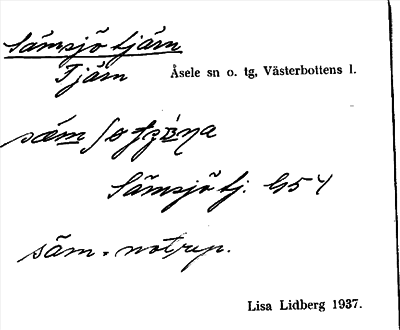 Sämsjötjärn
Tjärn Åsele sn o. tg, Västerbottens l.
Sämsjötj. G54
säm = notrep.
Lisa Lidberg 1937.